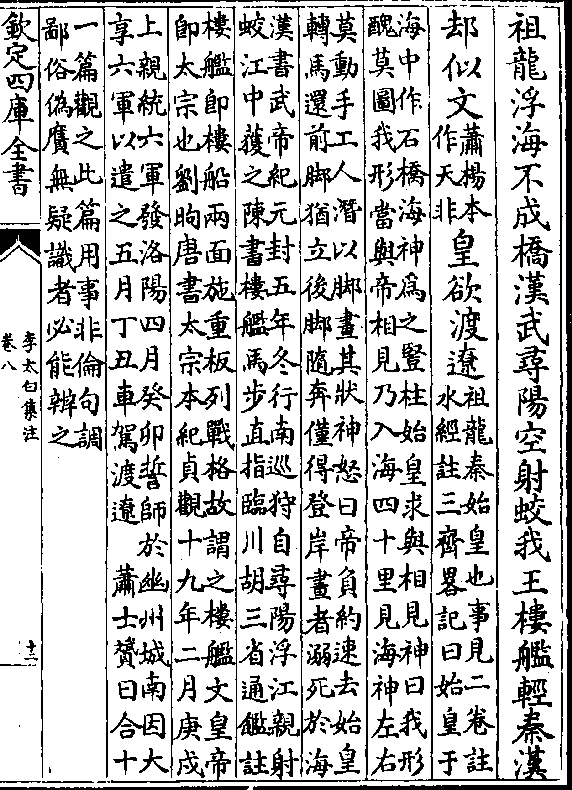 祖龍浮海不成橋漢武尋陽空射蛟我王樓艦輕秦漢
却似文蕭楊本
作天非皇欲渡遼祖龍秦始皇也事見二卷註
水經註三齊畧記曰始皇于
海中作石橋海神為之豎柱始皇求與相見神曰我形
醜莫圖我形當與帝相見乃入海四十里見海神左右
莫動手工人潛以脚畫其狀神怒曰帝負約速去始皇
轉馬還前脚猶立後脚隨奔僅得登岸畫者溺死於海
漢書武帝紀元封五年冬行南巡狩自尋陽浮江親射
蛟江中獲之陳書樓艦馬步直指臨川胡三省通鑑註
樓艦即樓船兩面施重板列戰格故謂之樓艦文皇帝
即太宗也劉昫唐書太宗本紀貞觀十九年二月庚戍
上親統六軍發洛陽四月癸卯誓師於幽州城南因大
享六軍以遣之五月丁丑車駕渡遼 蕭士贇曰合十
一篇觀之此篇用事非倫句調
鄙俗偽贋無疑識者必能辨之
欽定四庫全書
李太白集注
卷八
十二